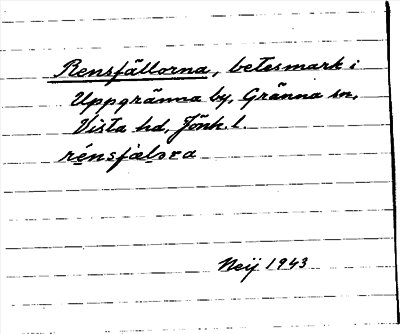 Rensfällorna, betesmark i
Uppgränna by, Gränna sn,
Vista hd, Jönk. l.
rénsfælora
Neij 1943